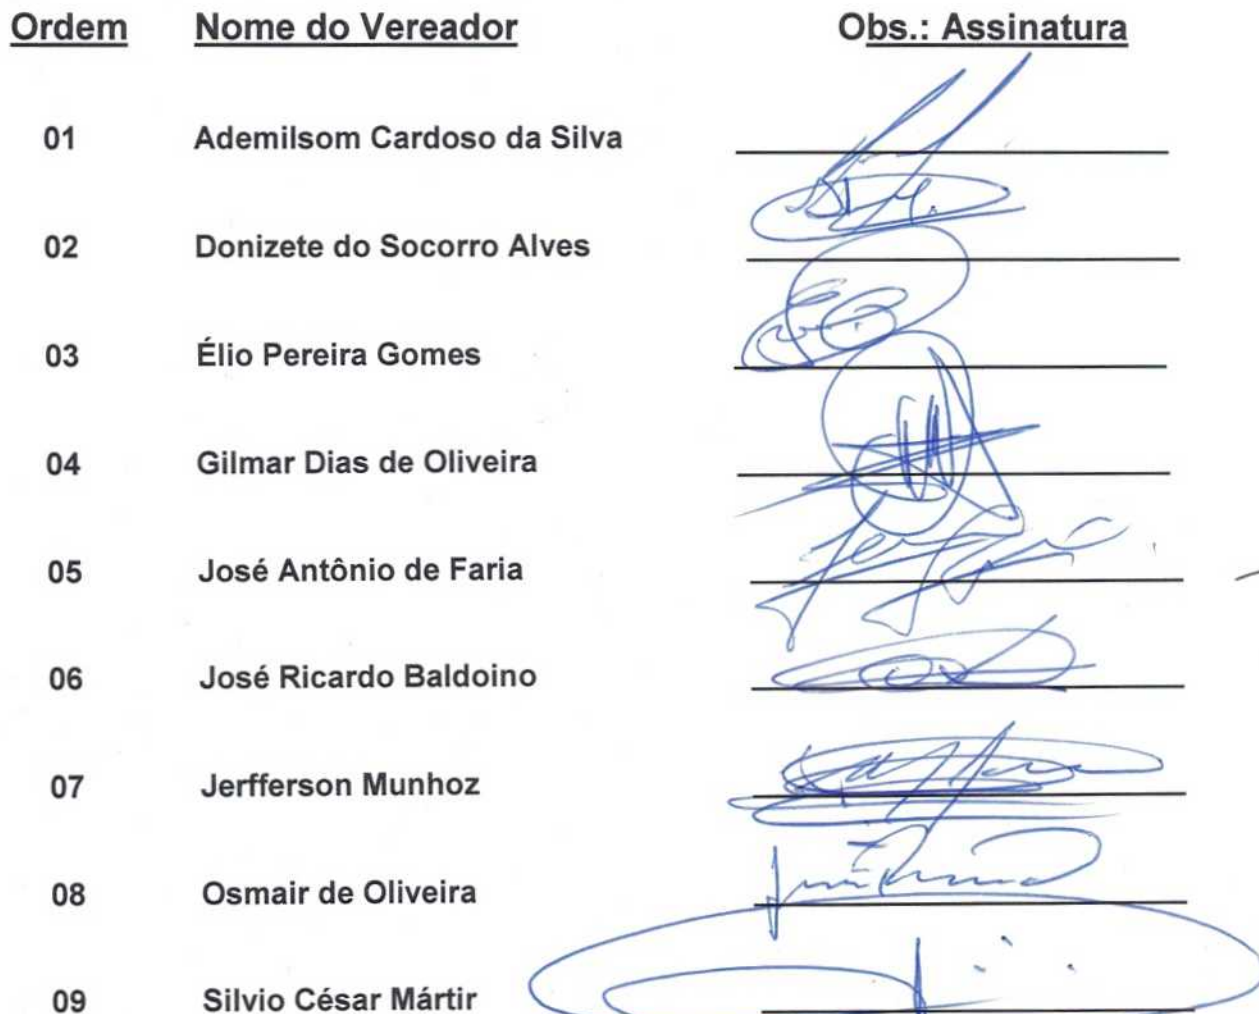 Ordem Nome do Vereador Obs.: Assinatura
01 Ademilsom Cardoso da Silva
02 Donizete do Socorro Alves
03 Élio Pereira Gomes
04 Gilmar Dias de Oliveira
05 José Antônio de Faria
06 José Ricardo Baldoino
07 Jerfferson Munhoz
08 Osmair de Oliveira
09 Silvio César Mártir